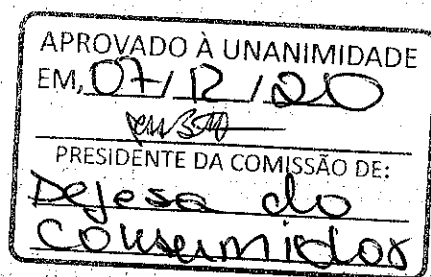 APROVADO À UNANIMIDADE
EM, 07/12/20
PRESIDENTE DA COMISSÃO DE:
Defesa do
Consumidor